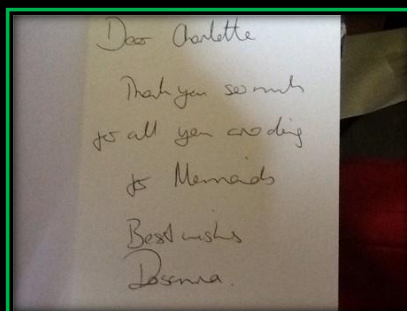 Dear Charlotte
Thank you so much
for all you are doing
for Mermaids
Best wishes